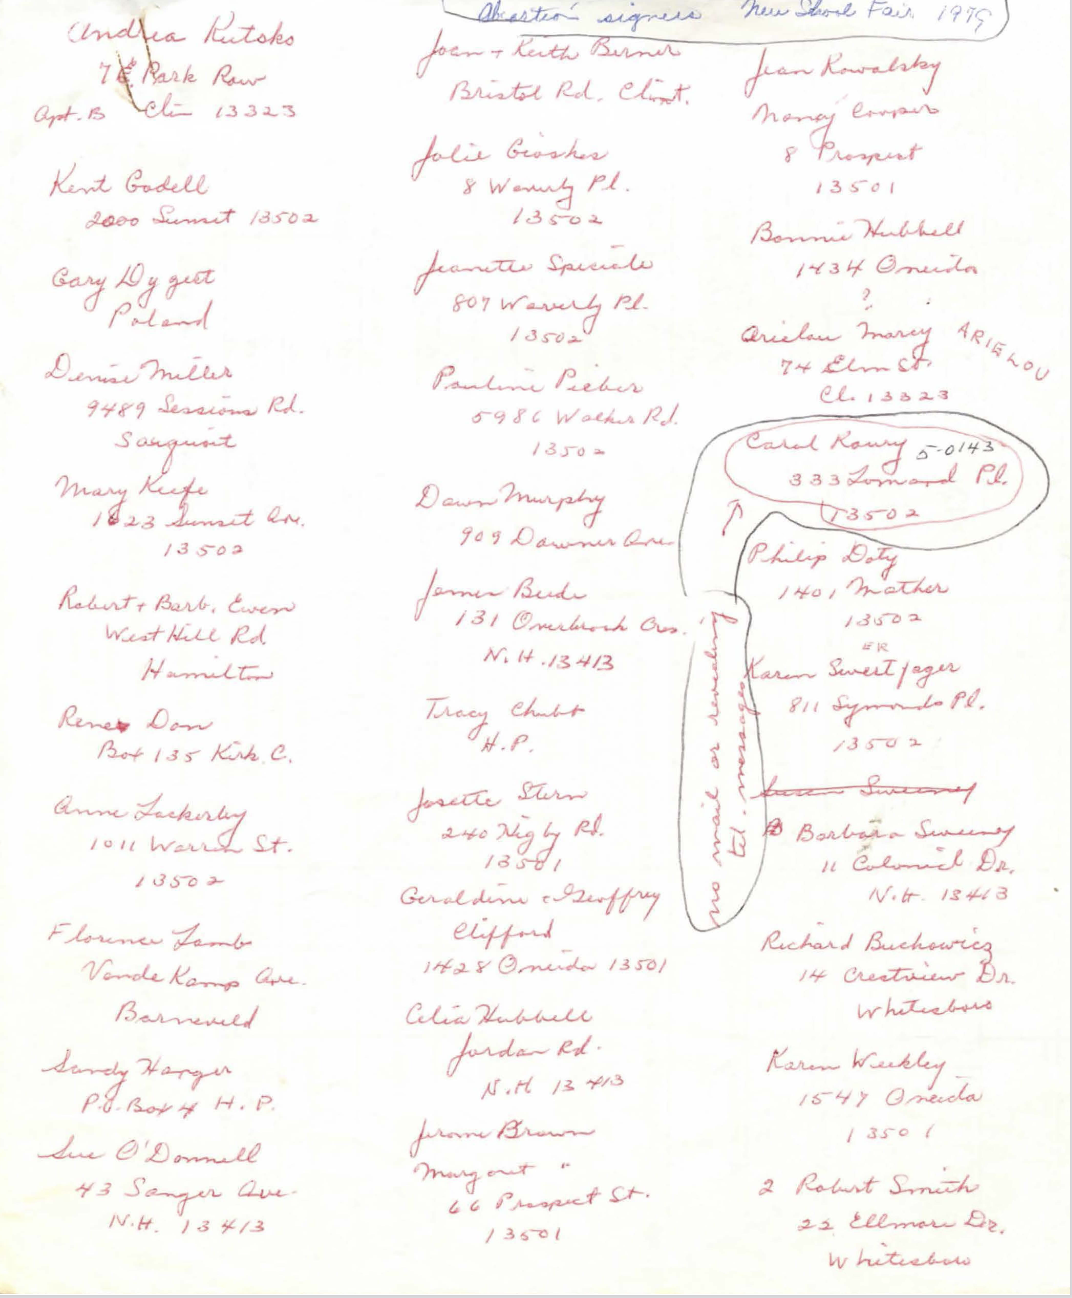 Abortion signers New School Fair 1979
Andrea Rutsko
7 E. Park Row
Apt. B Clin 13323
Kent Godell
2000 Sunset 13502
Gary Dygert
Poland
Denise Miller
9489 Sessions Rd.
Sauquoit
Mary Keefe
1623 Sunset Ave.
13502
Robert + Barb. Ewen
West Hill Rd
Hamilton
Renee Dan
Box 135 Kirk. C.
Anne Lockerby
1011 Warren St.
13502
Florence Lamb
Vande Kamp Ave.
Barneveld
Sandy Harger
P.O. Box 4 H.P.
Sue O'Donnell
43 Sanger Ave.
N.H. 13413
Joan + Keith Berner
Bristol Rd. Clint.
Julie
8 Waverly Pl.
13502
Jeanette Speciale
807 Waverly Pl.
13502
Pauline Pieber
5986 Walker Rd.
13502
Dawn Murphy
909 Ave.
James Bude
131 Overbrook Cres.
N.H. 13413
Tracy Chubb
H.P.
Josette Stern
240 Higby Rd.
13501
Geraldine + Geoffrey
Clifford
1428 Oneida 13501
Celia Hubbell
Jordan Rd.
N.H 13413
Jerome Brown
Margaret "
66 Prospect St.
13501
Jean Kowalsky
Nancy Cooper
8 Prospect
13501
Bonnie Hubbell
1434 Oneida
?
Arielou Marcy ARIELOU
74 Elm St.
Cl. 13323
Carol Roury 5-0143
333 Lomond Pl.
13502
no mail or revealing
tel. messages
Philip Doty
1401 Mather
13502
ER
Karen Sweetjager
811 Symonds Pl.
13502
Susan Sweeney
Barbara Sweeney
11 Colonial Dr.
N.H. 13413
Richard Buchowicz
14 Crestview Dr.
Whitesboro
Karen Weekley
1547 Oneida
13501
2 Robert Smith
22 Ellmore Dr.
Whitesboro